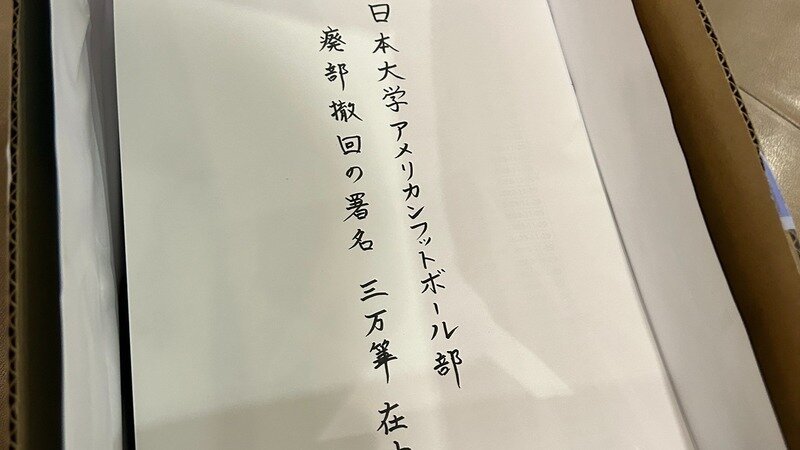 日本大学アメリカンフットボール部
廃部撤回の署名 三万筆 在